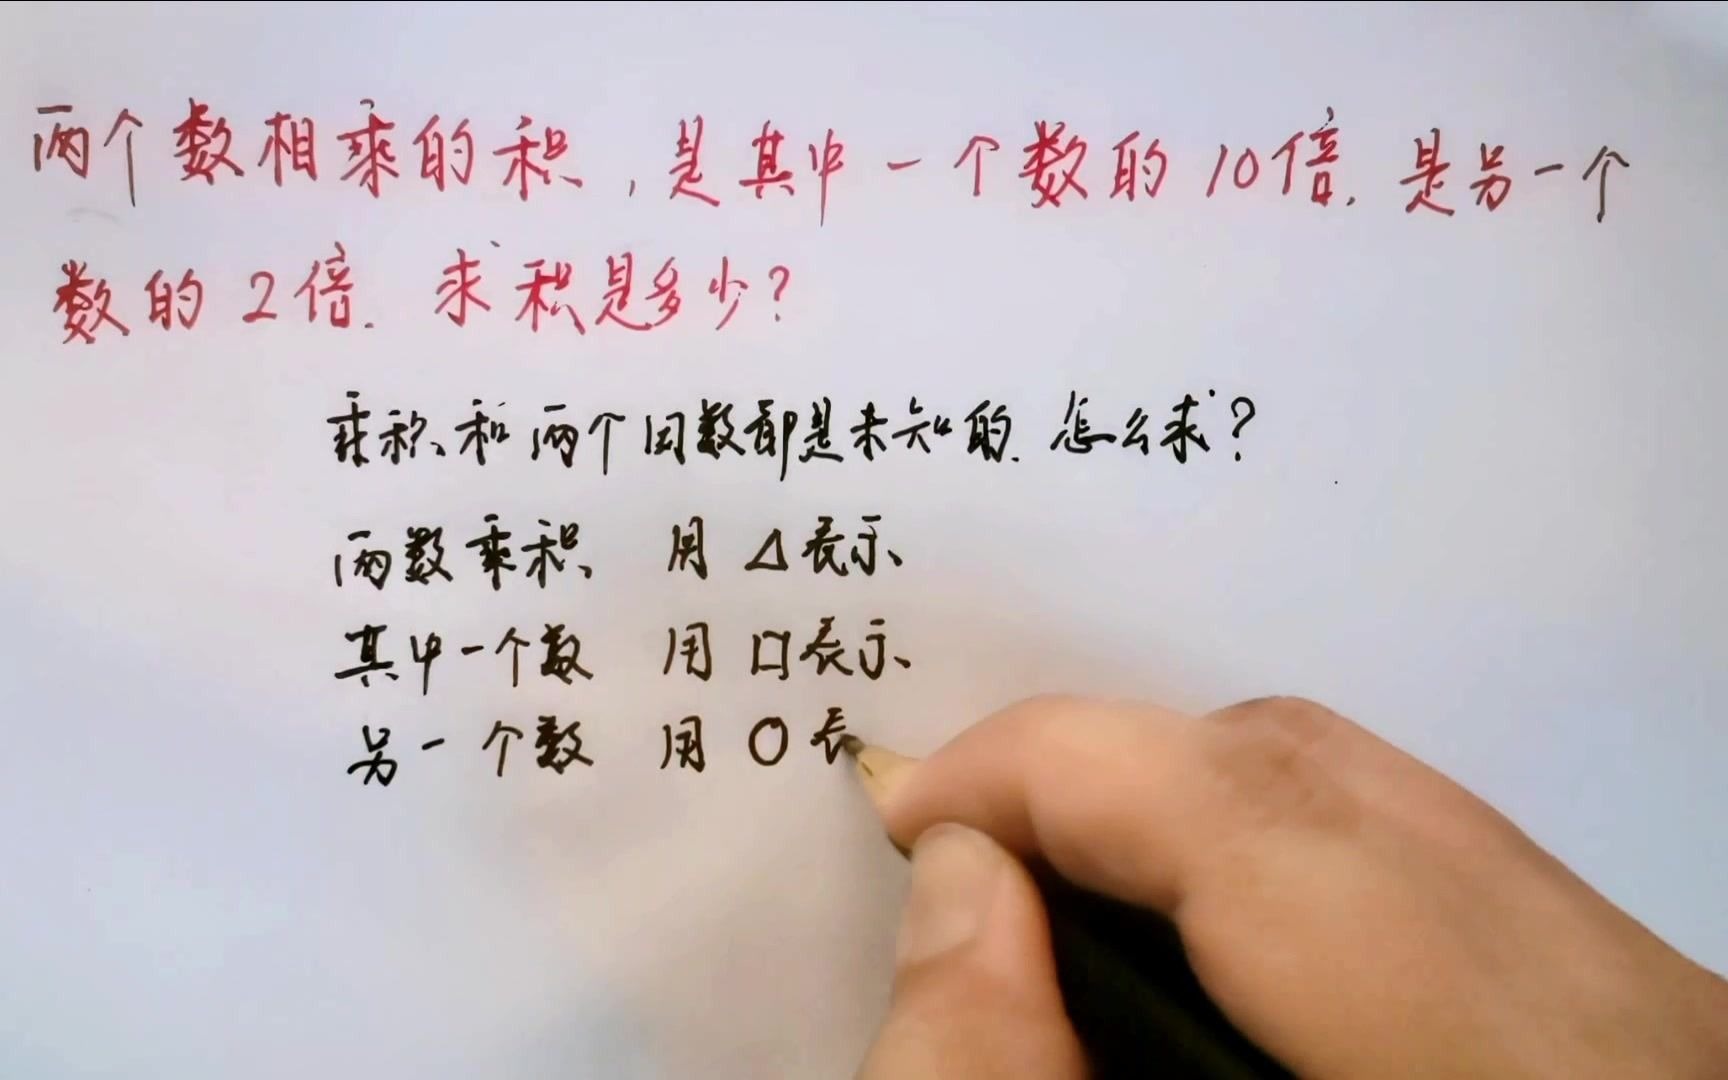 两个数相乘的积,是其中一个数的10倍.是另一个
数的2倍.求积是多少?
乘积和两个因数都是未知的.怎么求?
两数乘积 用△表示
其中一个数 用口表示
另一个数 用○表